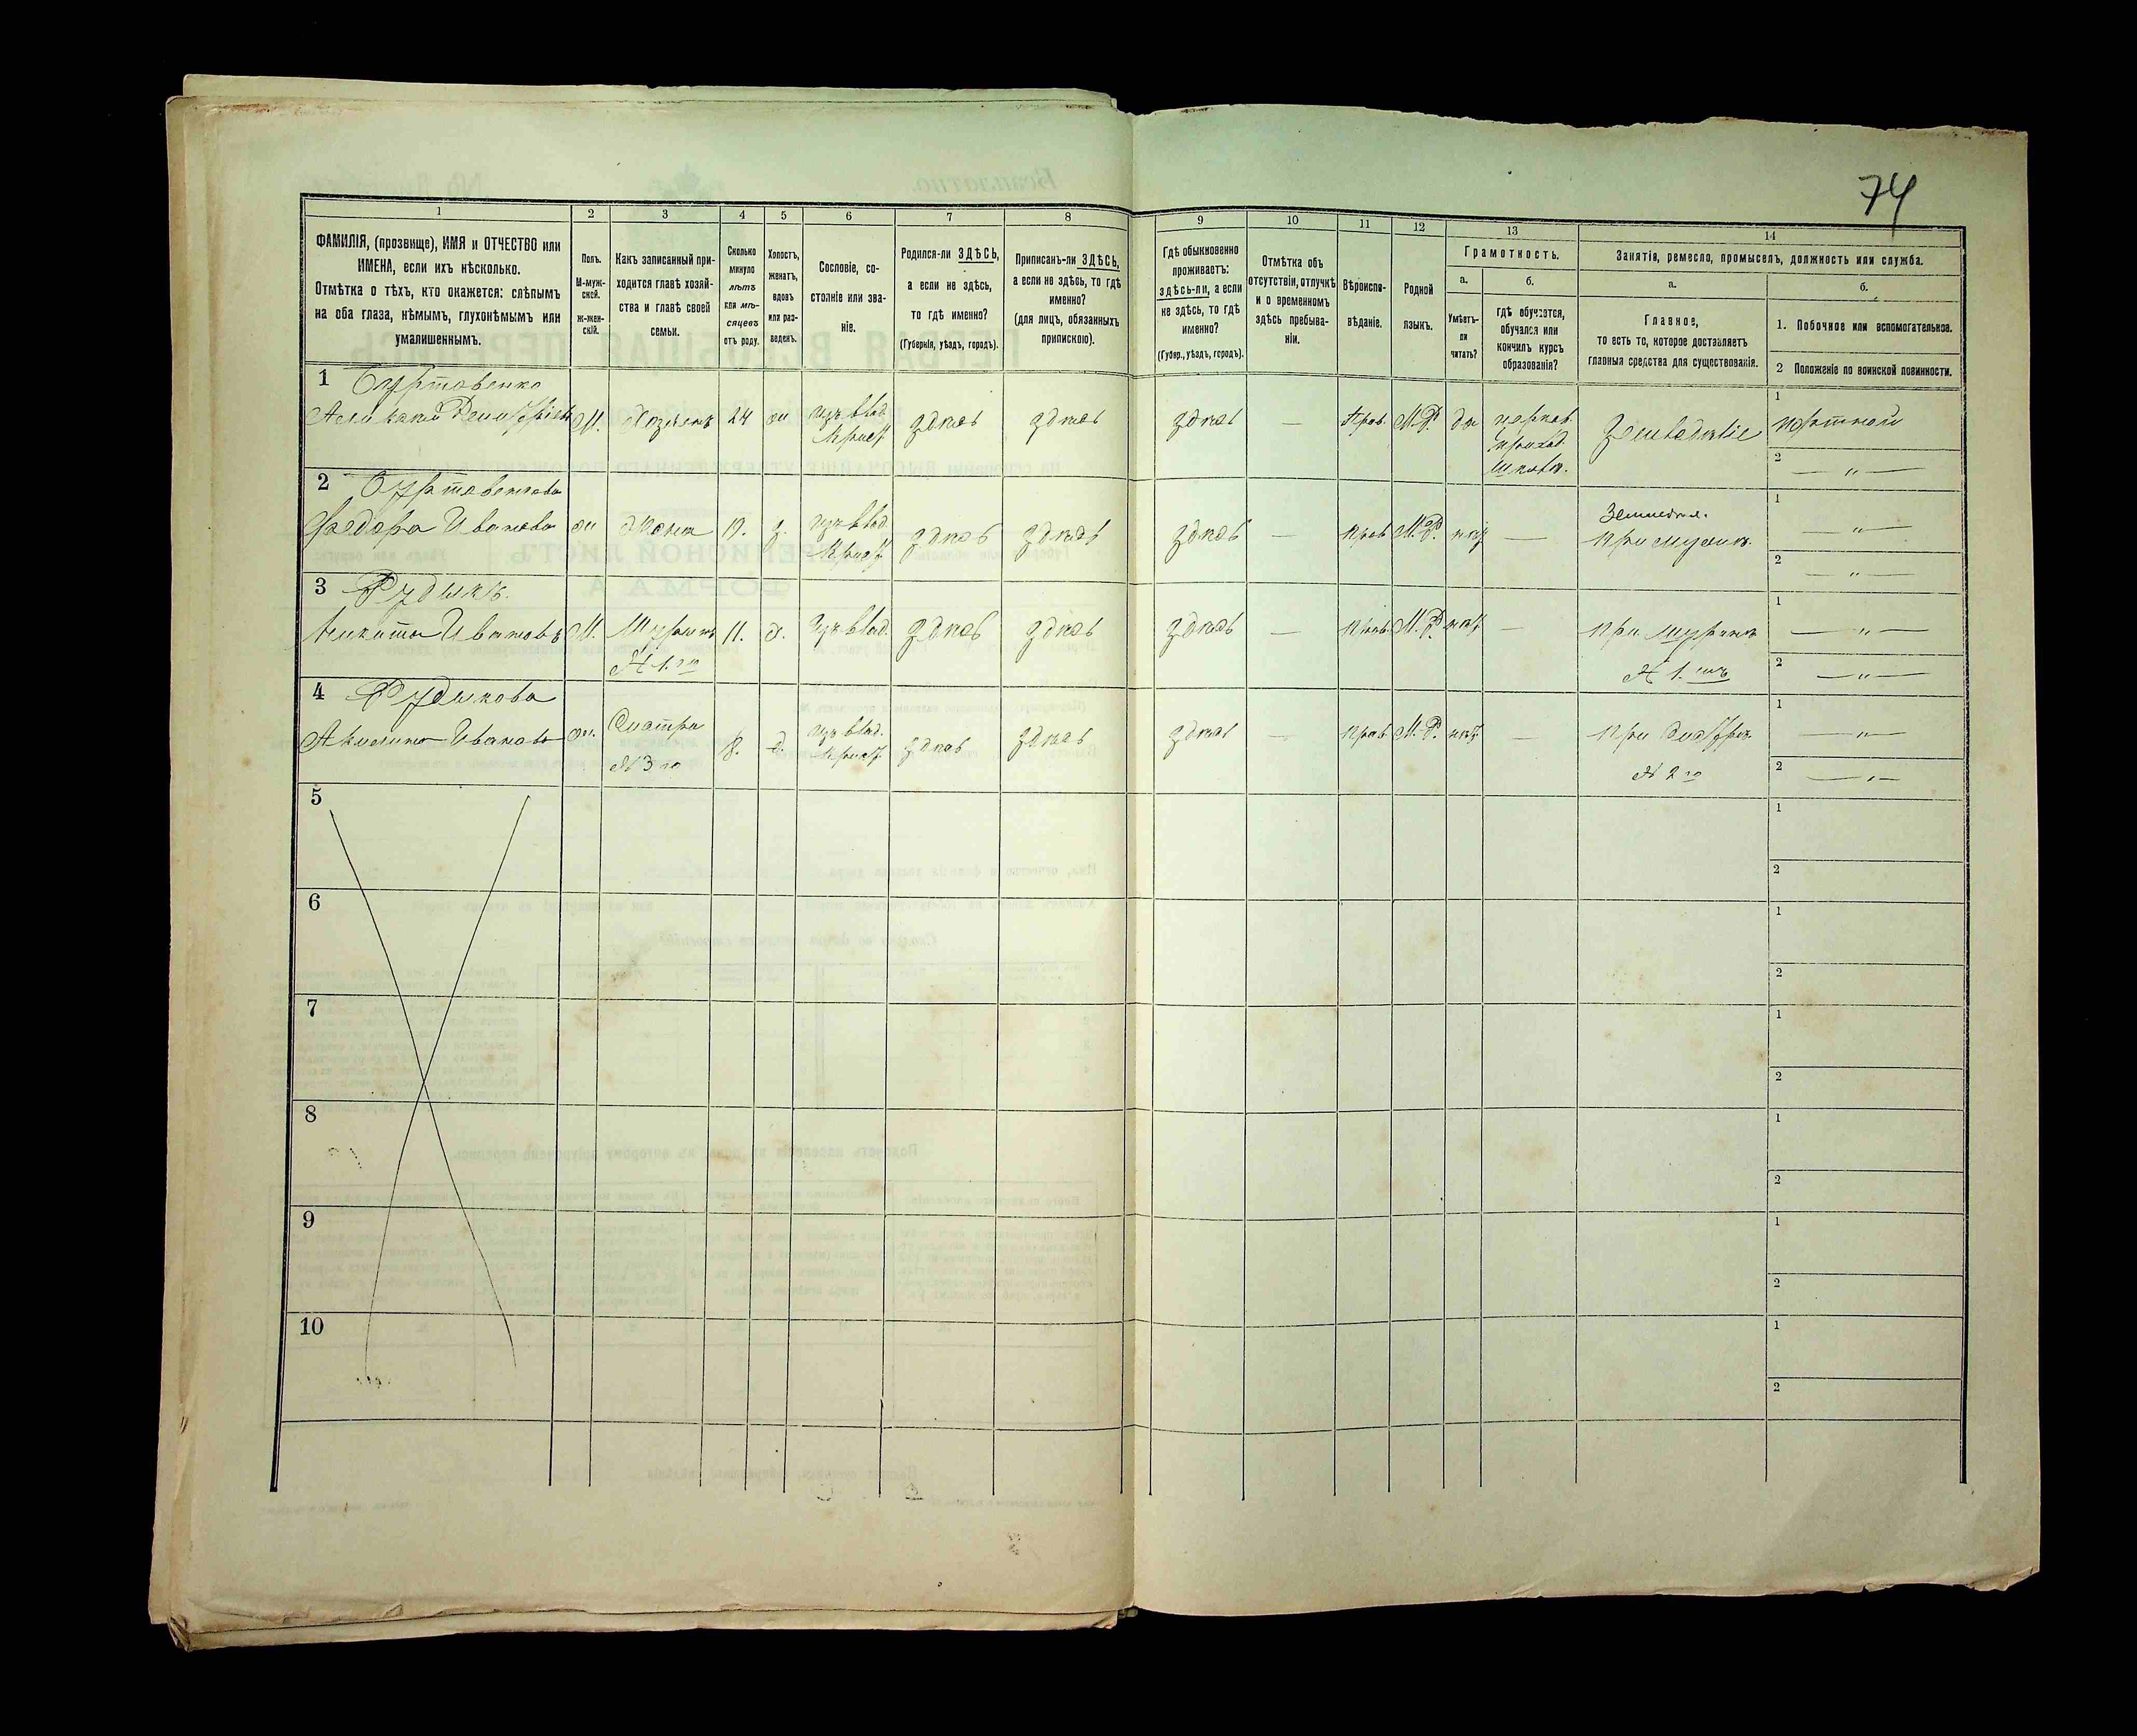 74
1
2
3
4
5
6
7
8
9
10
11
12
13
14
ФАМИЛІЯ, (прозвище), ИМЯ и ОТЧЕСТВО или
ИМЕНА, если ихъ нѣсколько.
Отмѣтка о тѣхъ, кто окажется: слѣпымъ
на оба глаза, нѣмымъ, глухонѣмымъ или
умалишеннымъ.
Полъ.
М-муж-
ской.
ж-жен-
скій.
Какъ записанный при-
ходится главѣ хозяй-
ства и главѣ своей
семьи.
Сколько
минуло
лѣтъ
или мѣ-
сяцевъ
отъ роду.
Холостъ,
женатъ,
вдовъ
или раз-
веденъ.
Сословіе, со-
стояніе или зва-
ніе.
Родился-ли ЗДѢСЬ,
а если не здѣсь,
то гдѣ именно?
(Губернія, уѣздъ, городъ).
Приписанъ-ли ЗДѢСЬ,
а если не здѣсь, то гдѣ
именно?
(для лицъ, обязанныхъ
припискою).
Гдѣ обыкновенно
проживаетъ:
здѣсь-ли, а если
не здѣсь, то гдѣ
именно?
(Губер., уѣздъ, городъ).
Отмѣтка объ
отсутствіи, отлучкѣ
и о временномъ
здѣсь пребыва-
ніи.
Вѣроиспо-
вѣданіе.
Родной
языкъ.
Грамотность.
а.
Умѣетъ-
ли
читать?
б.
гдѣ обучается,
обучался или
кончилъ курсъ
образованія?
Занятія, ремесло, промыселъ, должность или служба.
а.
Главное,
то есть то, которое доставляетъ
главныя средства для существованія.
б.
1. Побочное или вспомогательное.
2 Положеніе по воинской повинности.
1
М. Хозяинъ 24 ж здѣсь здѣсь здѣсь — Прав. М.Р. да
церков.
приход.
школѣ.
1
портной
2 — „ —
2
Ѳедора Иванова ж жена 19. з. здѣсь здѣсь здѣсь — Прав М.Р. нѣт —
Земледѣл.
при мужѣ.
1 — „ —
2 — „ —
3 Рудыкъ.
Никита Ивановъ М. Шуринъ 11. х. здѣсь здѣсь здѣсь — Прав. М.Р. нѣт —
№ 1.го
при шуринѣ
№ 1.мъ
1 — „ —
2 — „ —
4 Рудыкова
Акилина Иванова ж. Сестра 8. д. здѣсь здѣсь здѣсь — Прав М.Р. нѣт. —
№ 3 го
при сестрѣ
№ 2 го
1 — „ —
2 — „ —
5
1
2
6
1
2
7
1
2
8
1
2
9
1
2
10
1
2